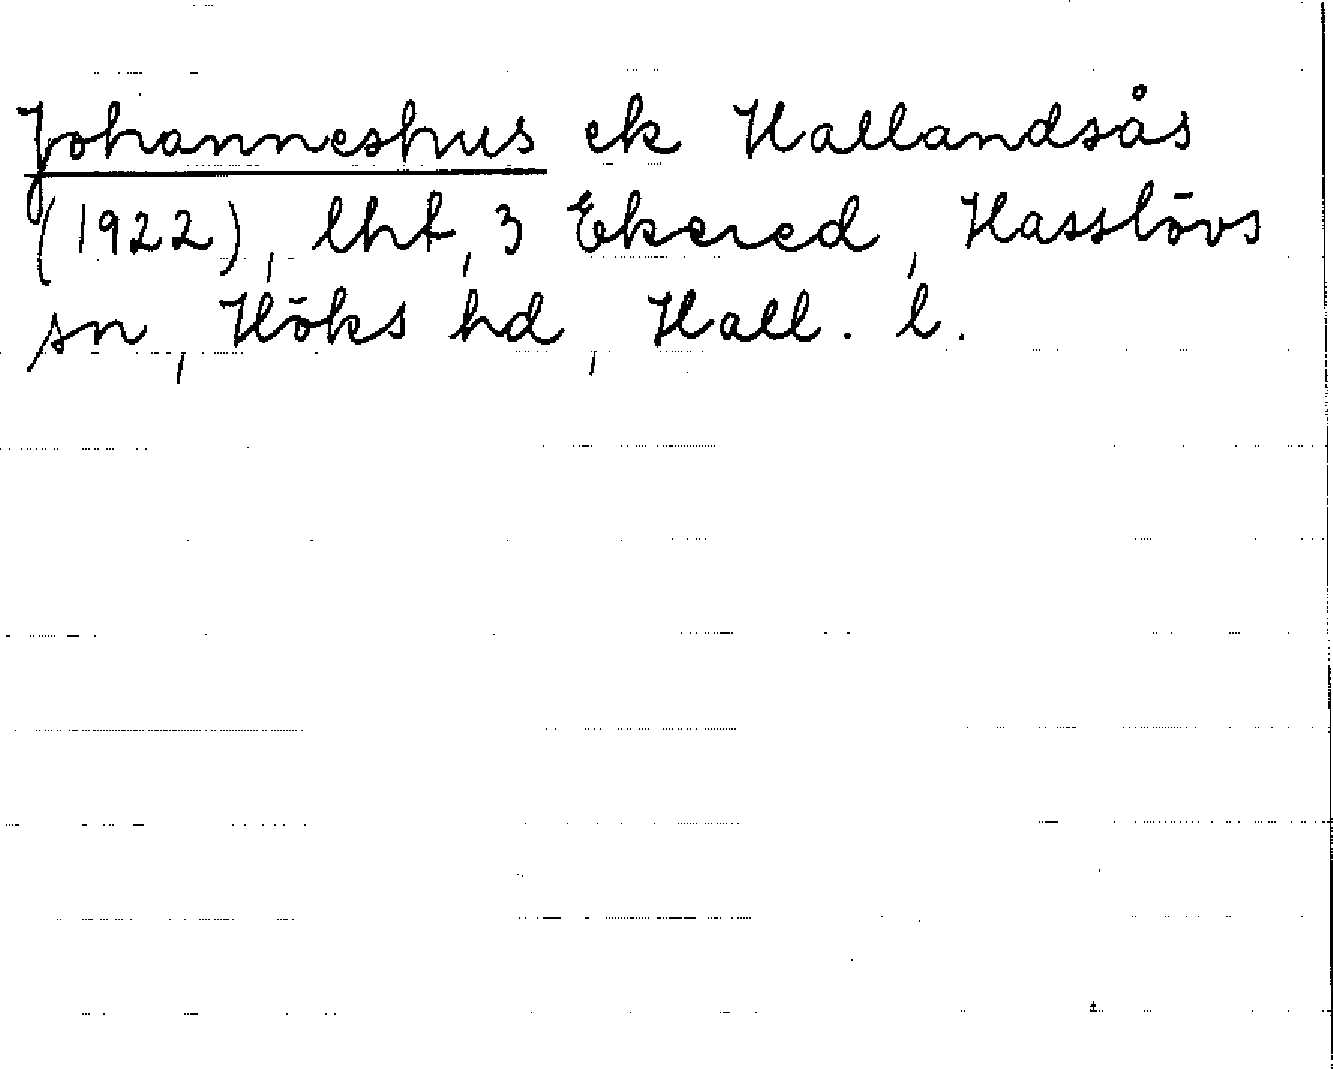 Johanneshus ek Hallandsås
(1922), lht, 3 Ekered, Hasslövs
sn, Höks hd, Hall. l.